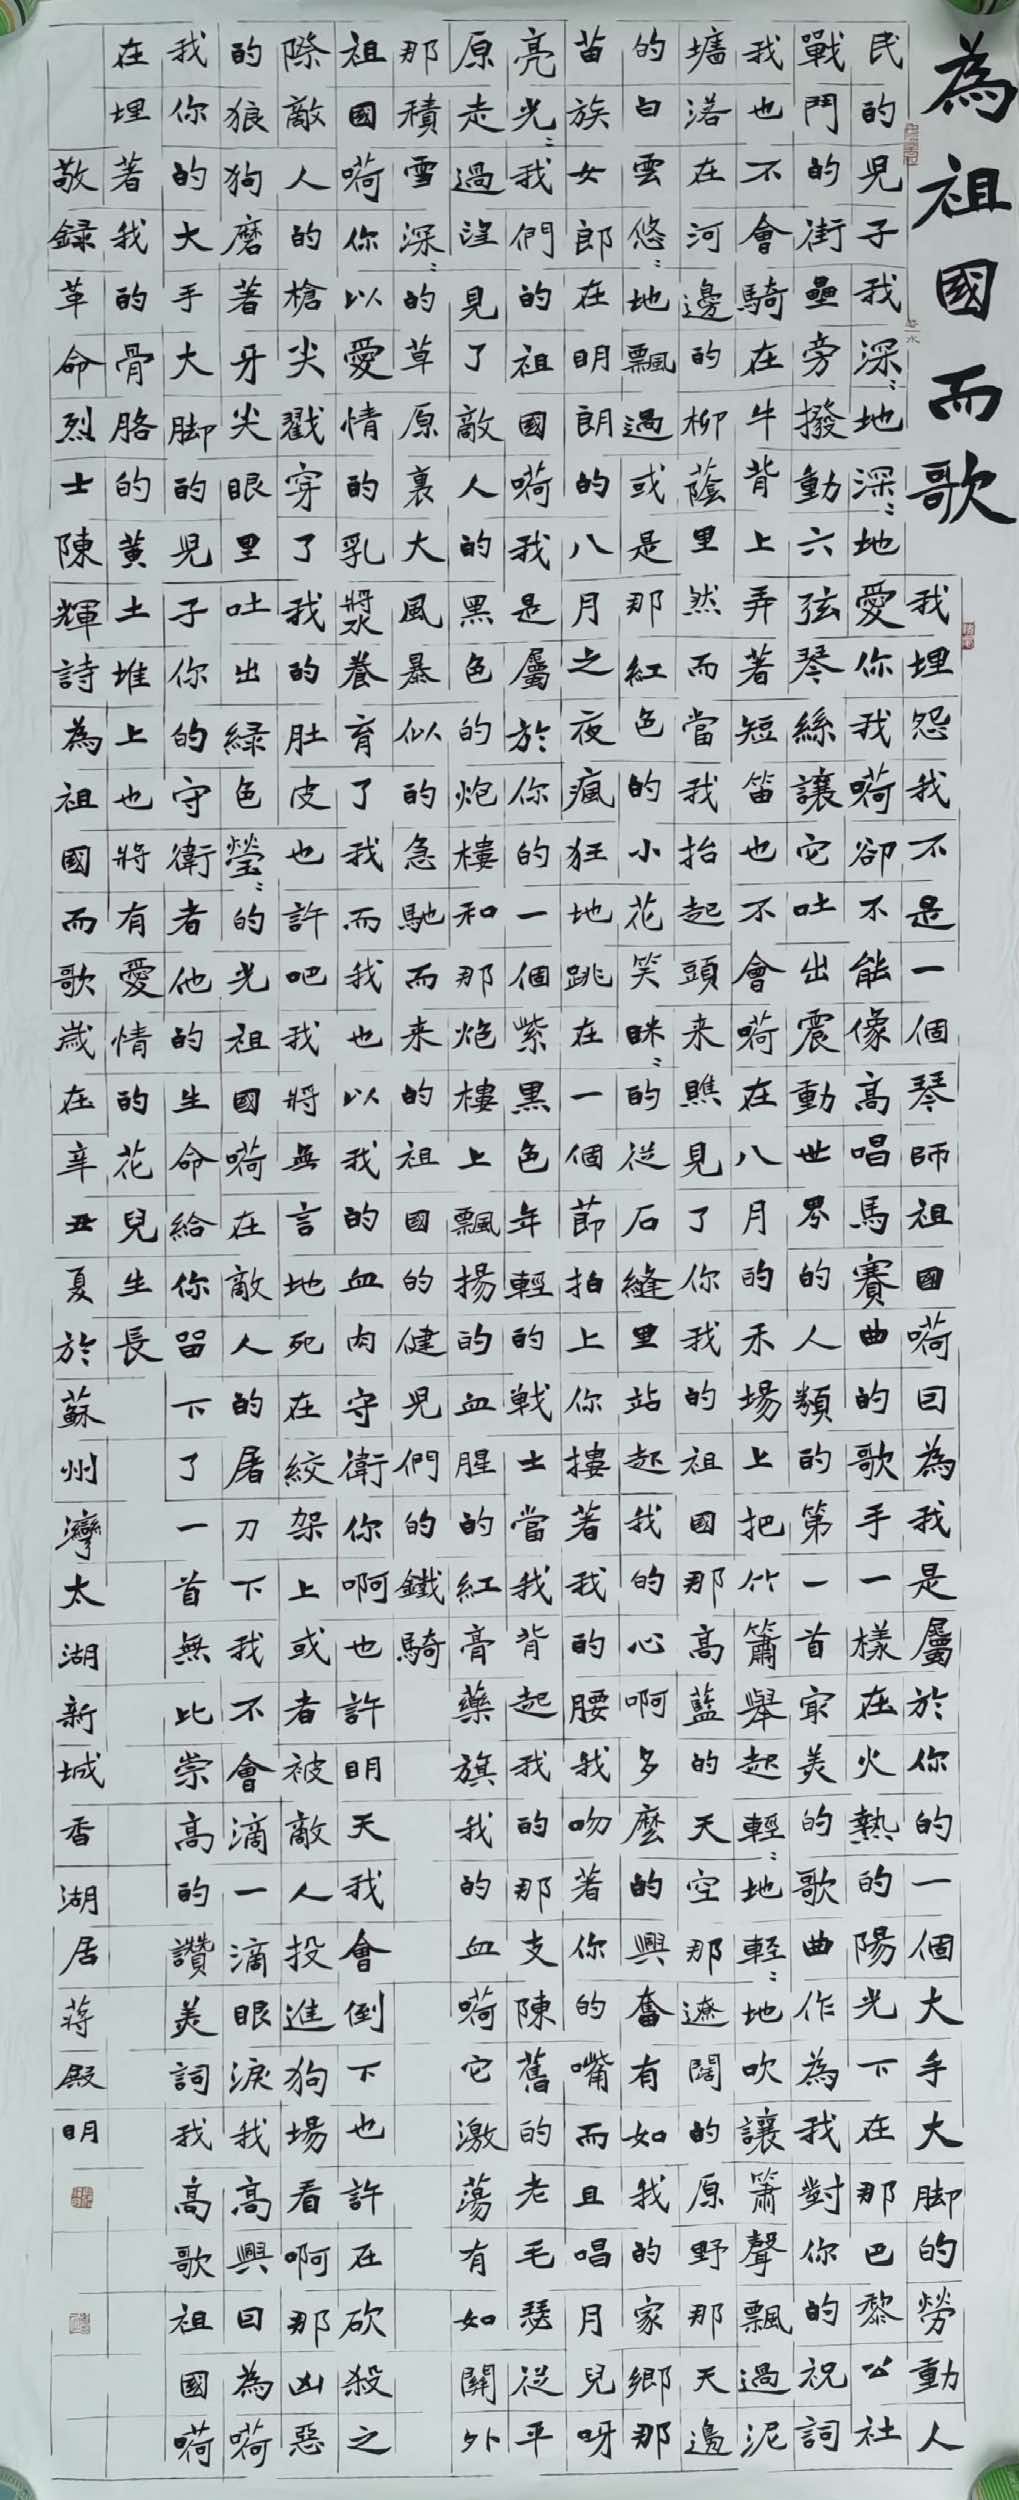 為祖國而歌
我埋怨我不是一個琴師祖國嗬曰為我是屬於你的一個大手大脚的勞動人
民的兒子我深:地深:地愛你我嗬卻不能像高唱馬賽曲的歌手一樣在火熱的陽光下在那巴黎公社
戰鬥的街壘旁撥動六弦琴絲讓它吐出震動世界的人類的第一首最美的歌曲作為我對你的祝詞
我也不會騎在牛背上弄著短笛也不會嗬在八月的禾場上把竹簫舉起輕:地輕:地吹讓簫聲飄過泥
墻落在河邊的柳蔭里然而當我抬起頭来瞧見了你我的祖國那高藍的天空那遼闊的原野那天邊
的白雲悠:地飄過或是那紅色的小花笑眯:的從石縫里站起我的心啊多麼的興奮有如我的家鄉那
苗族女郎在明朗的八月之夜瘋狂地跳在一個節拍上你摟著我的腰我吻著你的嘴而且唱月兒呀
亮光:我們的祖國嗬我是屬於你的一個紫黑色年輕的戰士當我背起我的那支陳舊的老毛瑟從平
原走過望見了敵人的黑色的炮樓和那炮樓上飄揚的血腥的紅膏藥旗我的血嗬它激蕩有如關外
那積雪深:的草原裏大風暴似的急馳而来的祖國的健兒們的鐵騎
祖國嗬你以愛情的乳漿養育了我而我也以我的血肉守衛你啊也許明天我會倒下也許在砍殺之
際敵人的槍尖戳穿了我的肚皮也許吧我將無言地死在絞架上或者被敵人投進狗場看啊那凶惡
的狼狗磨著牙尖眼里吐出綠色瑩:的光祖國嗬在敵人的屠刀下我不會滴一滴眼淚我高興曰為嗬
我你的大手大脚的兒子你的守衛者他的生命給你留下了一首無比崇高的讚美詞我高歌祖國嗬
在埋著我的骨胳的黃土堆上也將有愛情的花兒生長
敬録革命烈士陳輝詩為祖國而歌歲在辛丑夏於蘇州灣太湖新城香湖居蔣殿明